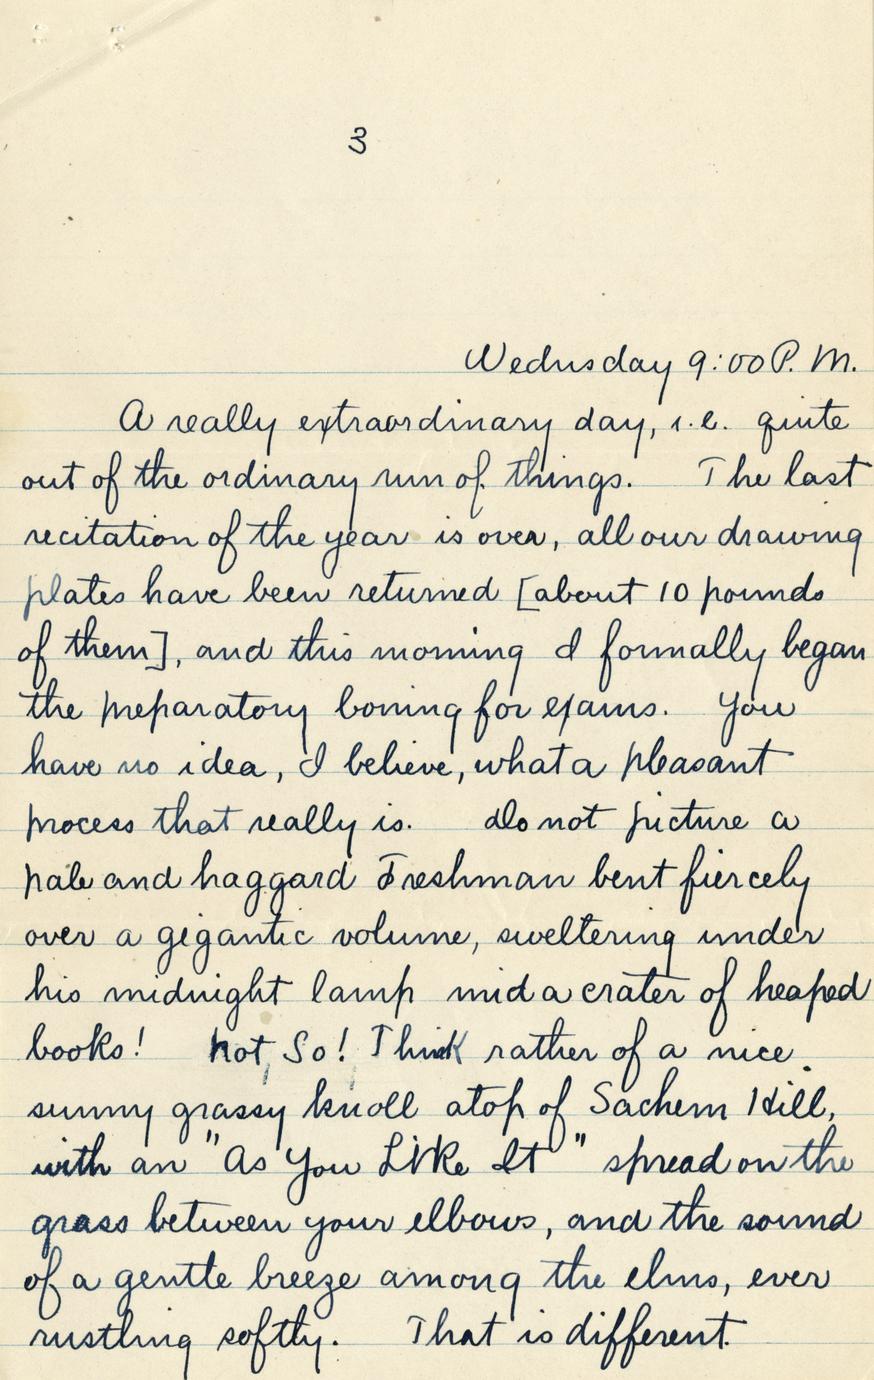 3
Wednsday 9:00 P.M.
A really extraordinary day, i.e. quite
out of the ordinary run of things. The last
recitation of the year is over, all our drawing
plates have been returned [about 10 pounds
of them], and this morning I formally began
the preparatory boning for exams. You
have no idea, I believe, what a pleasant
process that really is. Do not picture a
pale and haggard Freshman bent fiercely
over a gigantic volume, sweltering under
his midnight lamp mid a crater of heaped
books! Not, So! Think rather of a nice
sunny grassy knoll atop of Sachem Hill,
with an "As You Like It" spread on the
grass between your elbows, and the sound
of a gentle breeze among the elms, ever
rustling softly. That is different.